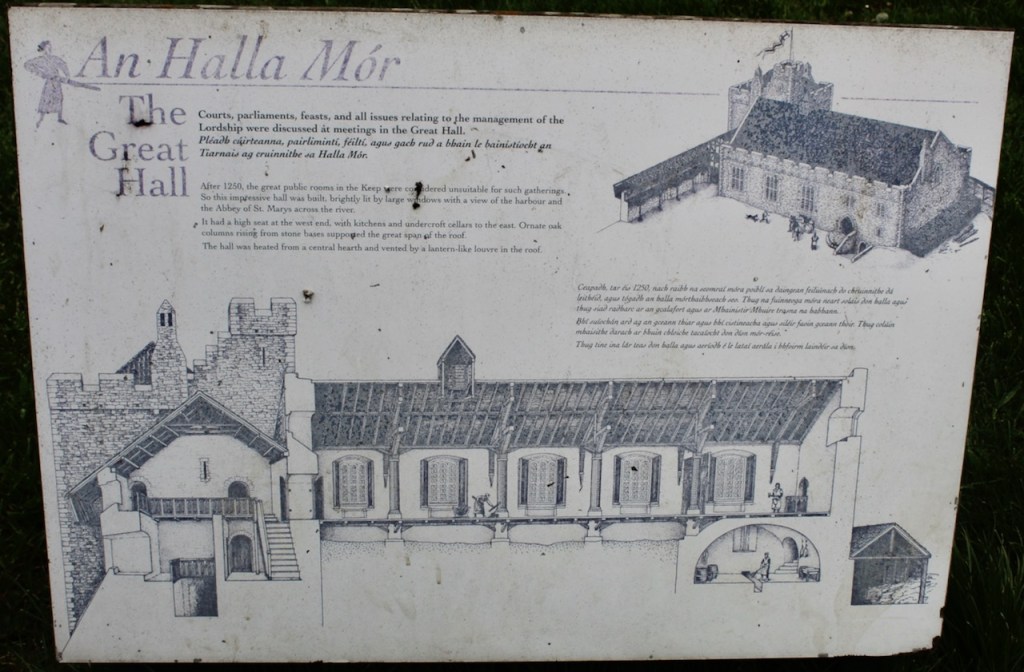 An Halla Mór
The
Great
Hall
Courts, parliaments, feasts, and all issues relating to the management of the
Lordship were discussed at meetings in the Great Hall.
Pléadh cúirteanna, pairlimintí, féiltí, agus gach rud a bhain le bainistíocht an
Tiarnais ag cruinnithe sa Halla Mór.
After 1250, the great public rooms in the Keep were considered unsuitable for such gatherings.
So this impressive hall was built, brightly lit by large windows with a view of the harbour and
the Abbey of St. Marys across the river.
It had a high seat at the west end, with kitchens and undercroft cellars to the east. Ornate oak
columns rising from stone bases supported the great span of the roof.
The hall was heated from a central hearth and vented by a lantern-like louvre in the roof.
Ceapadh, tar éis 1250, nach raibh na seomraí móra poiblí sa daingean feiliúnach do chruinnithe dá
leithéid, agus tógadh an halla mórthaibhseach seo. Thug na fuinneoga móra neart soláis don halla agus
thug siad radharc ar an gcalafort agus ar Mhainistir Mhuire trasna na habhann.
Bhí suíochán ard ag an gceann thiar agus bhí cistineacha agus siléir faoin gceann thoir. Thug coláin
mhaisithe darach ar bhuin chloiche tacaíocht don díon mór-réise.
Thug tine ina lár teas don halla agus aeríodh é le latai aerála i bhfoirm laindéir sa díon.